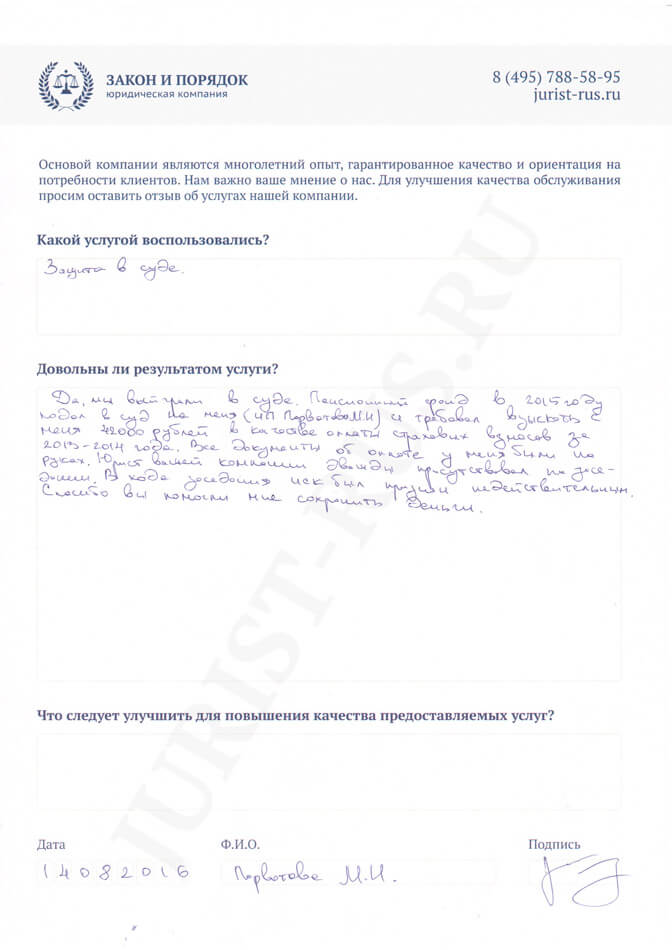 ЗАКОН И ПОРЯДОК
юридическая компания
8 (495) 788-58-95
jurist-rus.ru
Основой компании являются многолетний опыт, гарантированное качество и ориентация на
потребности клиентов. Нам важно ваше мнение о нас. Для улучшения качества обслуживания
просим оставить отзыв об услугах нашей компании.
Какой услугой воспользовались?
Защита в суде.
Довольны ли результатом услуги?
Да, мы выиграли в суде. Пенсионный фонд в 2015 году
подал в суд на меня (ИП М.И) и требовал взыскать с
меня 42000 рублей в качестве оплаты страховых взносов за
2013-2014 года. Все документы об оплате у меня были на
руках. Юрист вашей компании дважды присутствовал на засе-
дании. В ходе заседания иск был признан недействительным.
Спасибо вы помогли мне сохранить деньги.
Что следует улучшить для повышения качества предоставляемых услуг?
Дата
Ф.И.О.
Подпись
14082016
М.И.
JURIST-RUS.RU